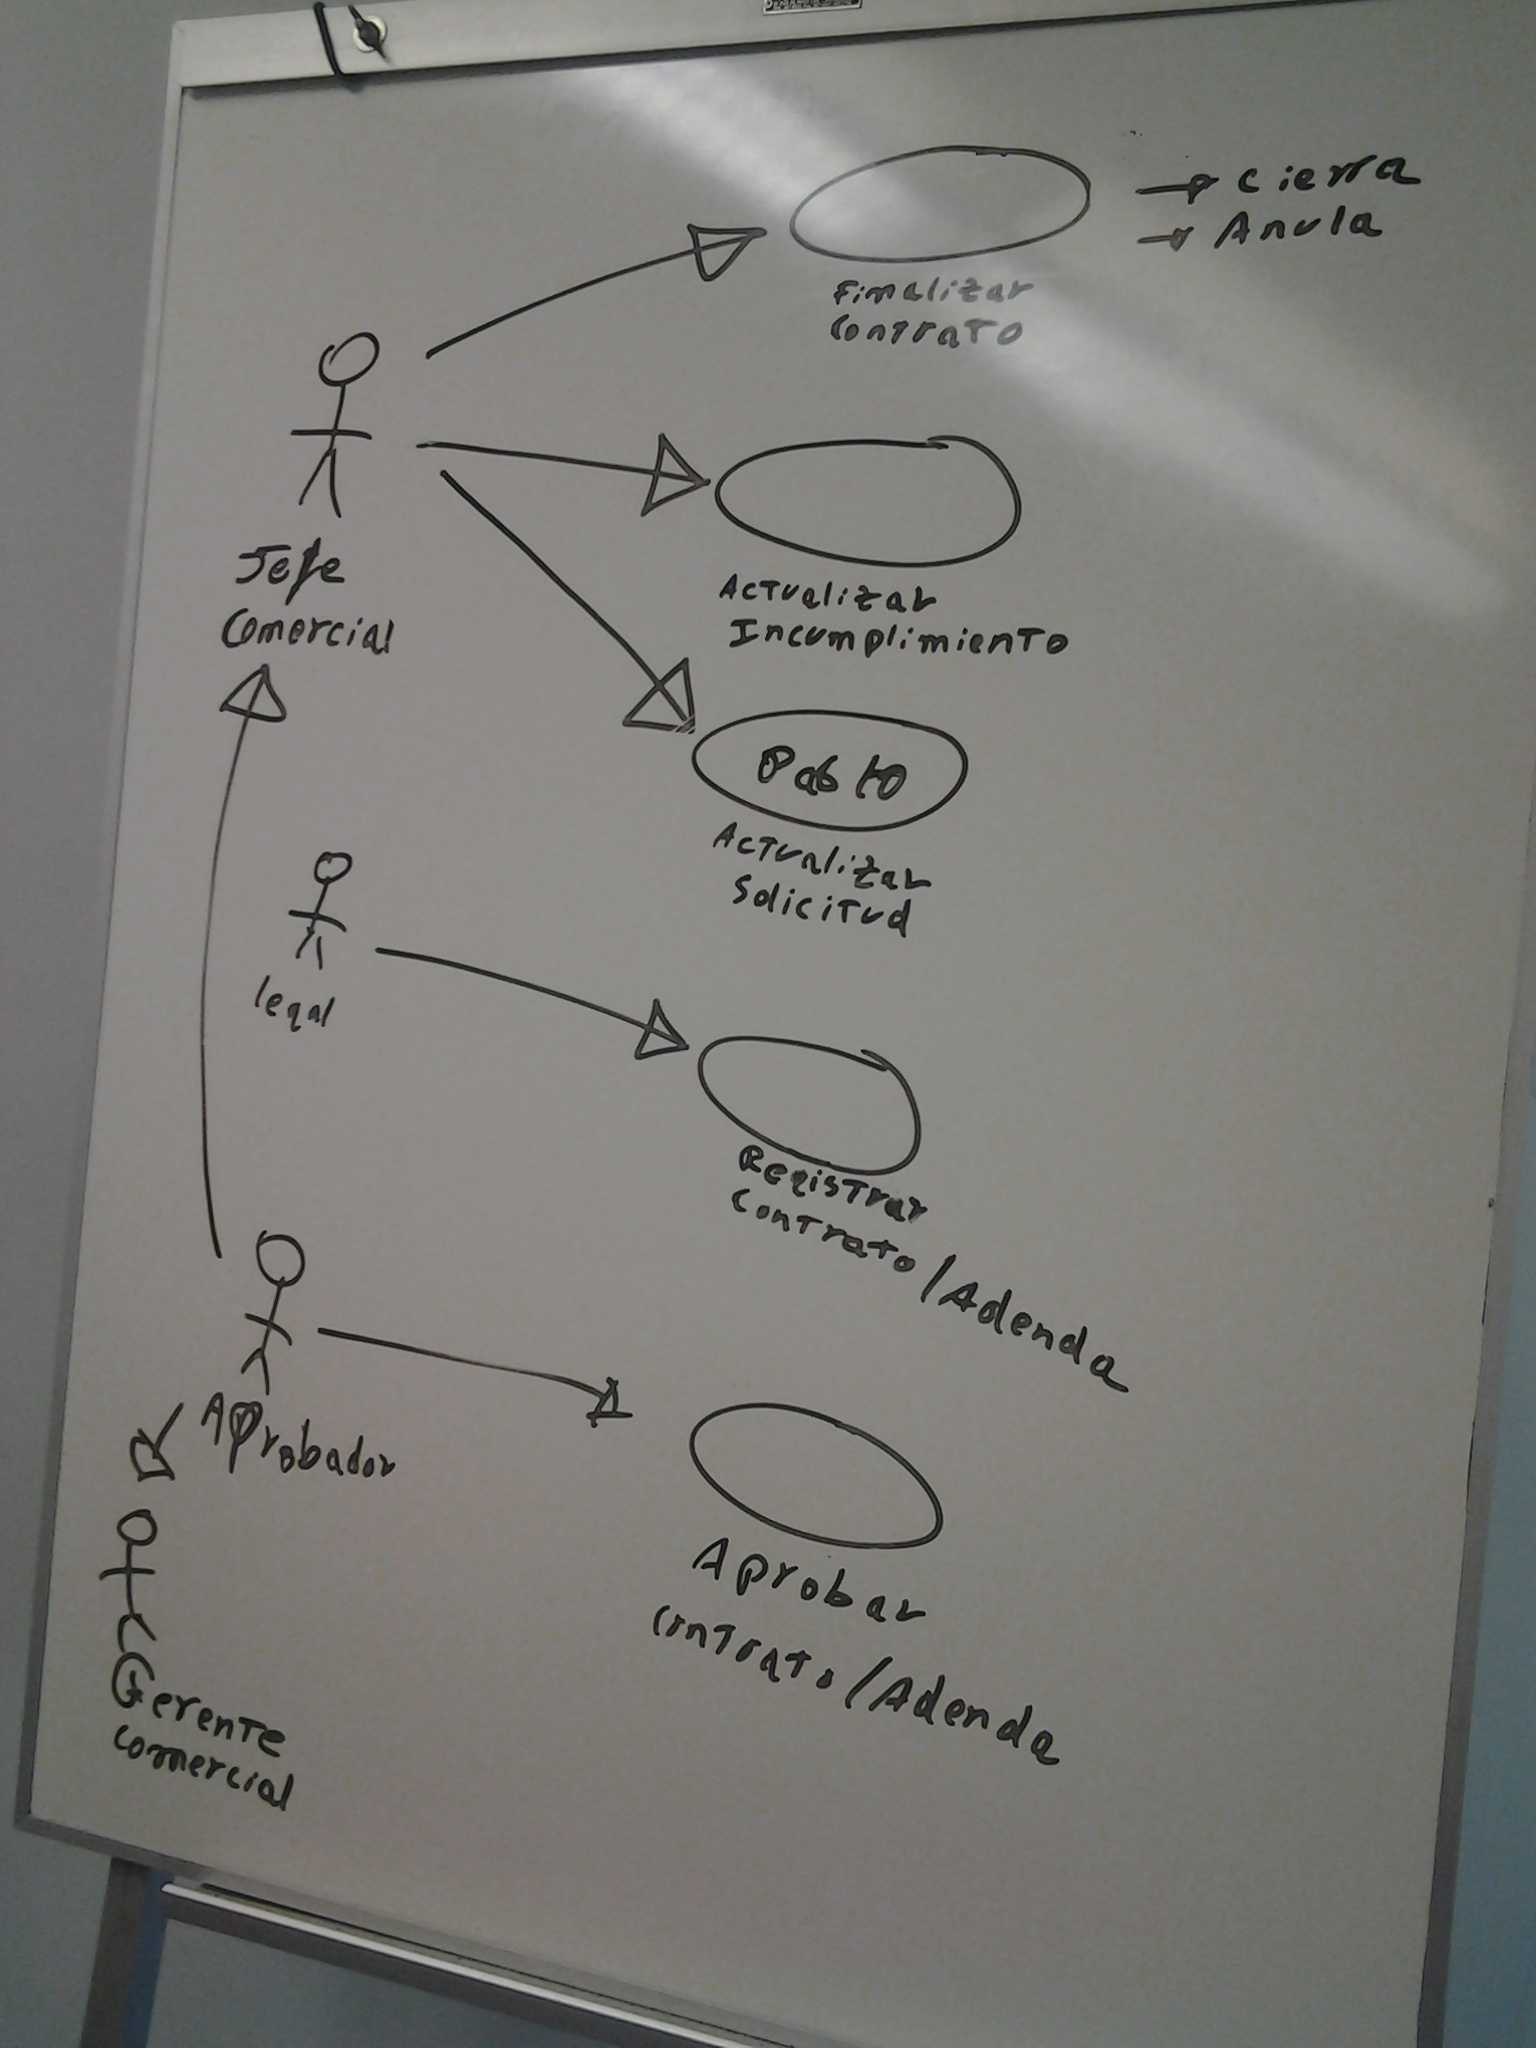 → Cierra
→ Anula
Finalizar
Contrato
Jefe
Comercial
Actualizar
Incumplimiento
Pablo
Actualizar
Solicitud
legal
Registrar
Contrato / Adenda
Aprobador
Aprobar
Contrato / Adenda
Gerente
Comercial